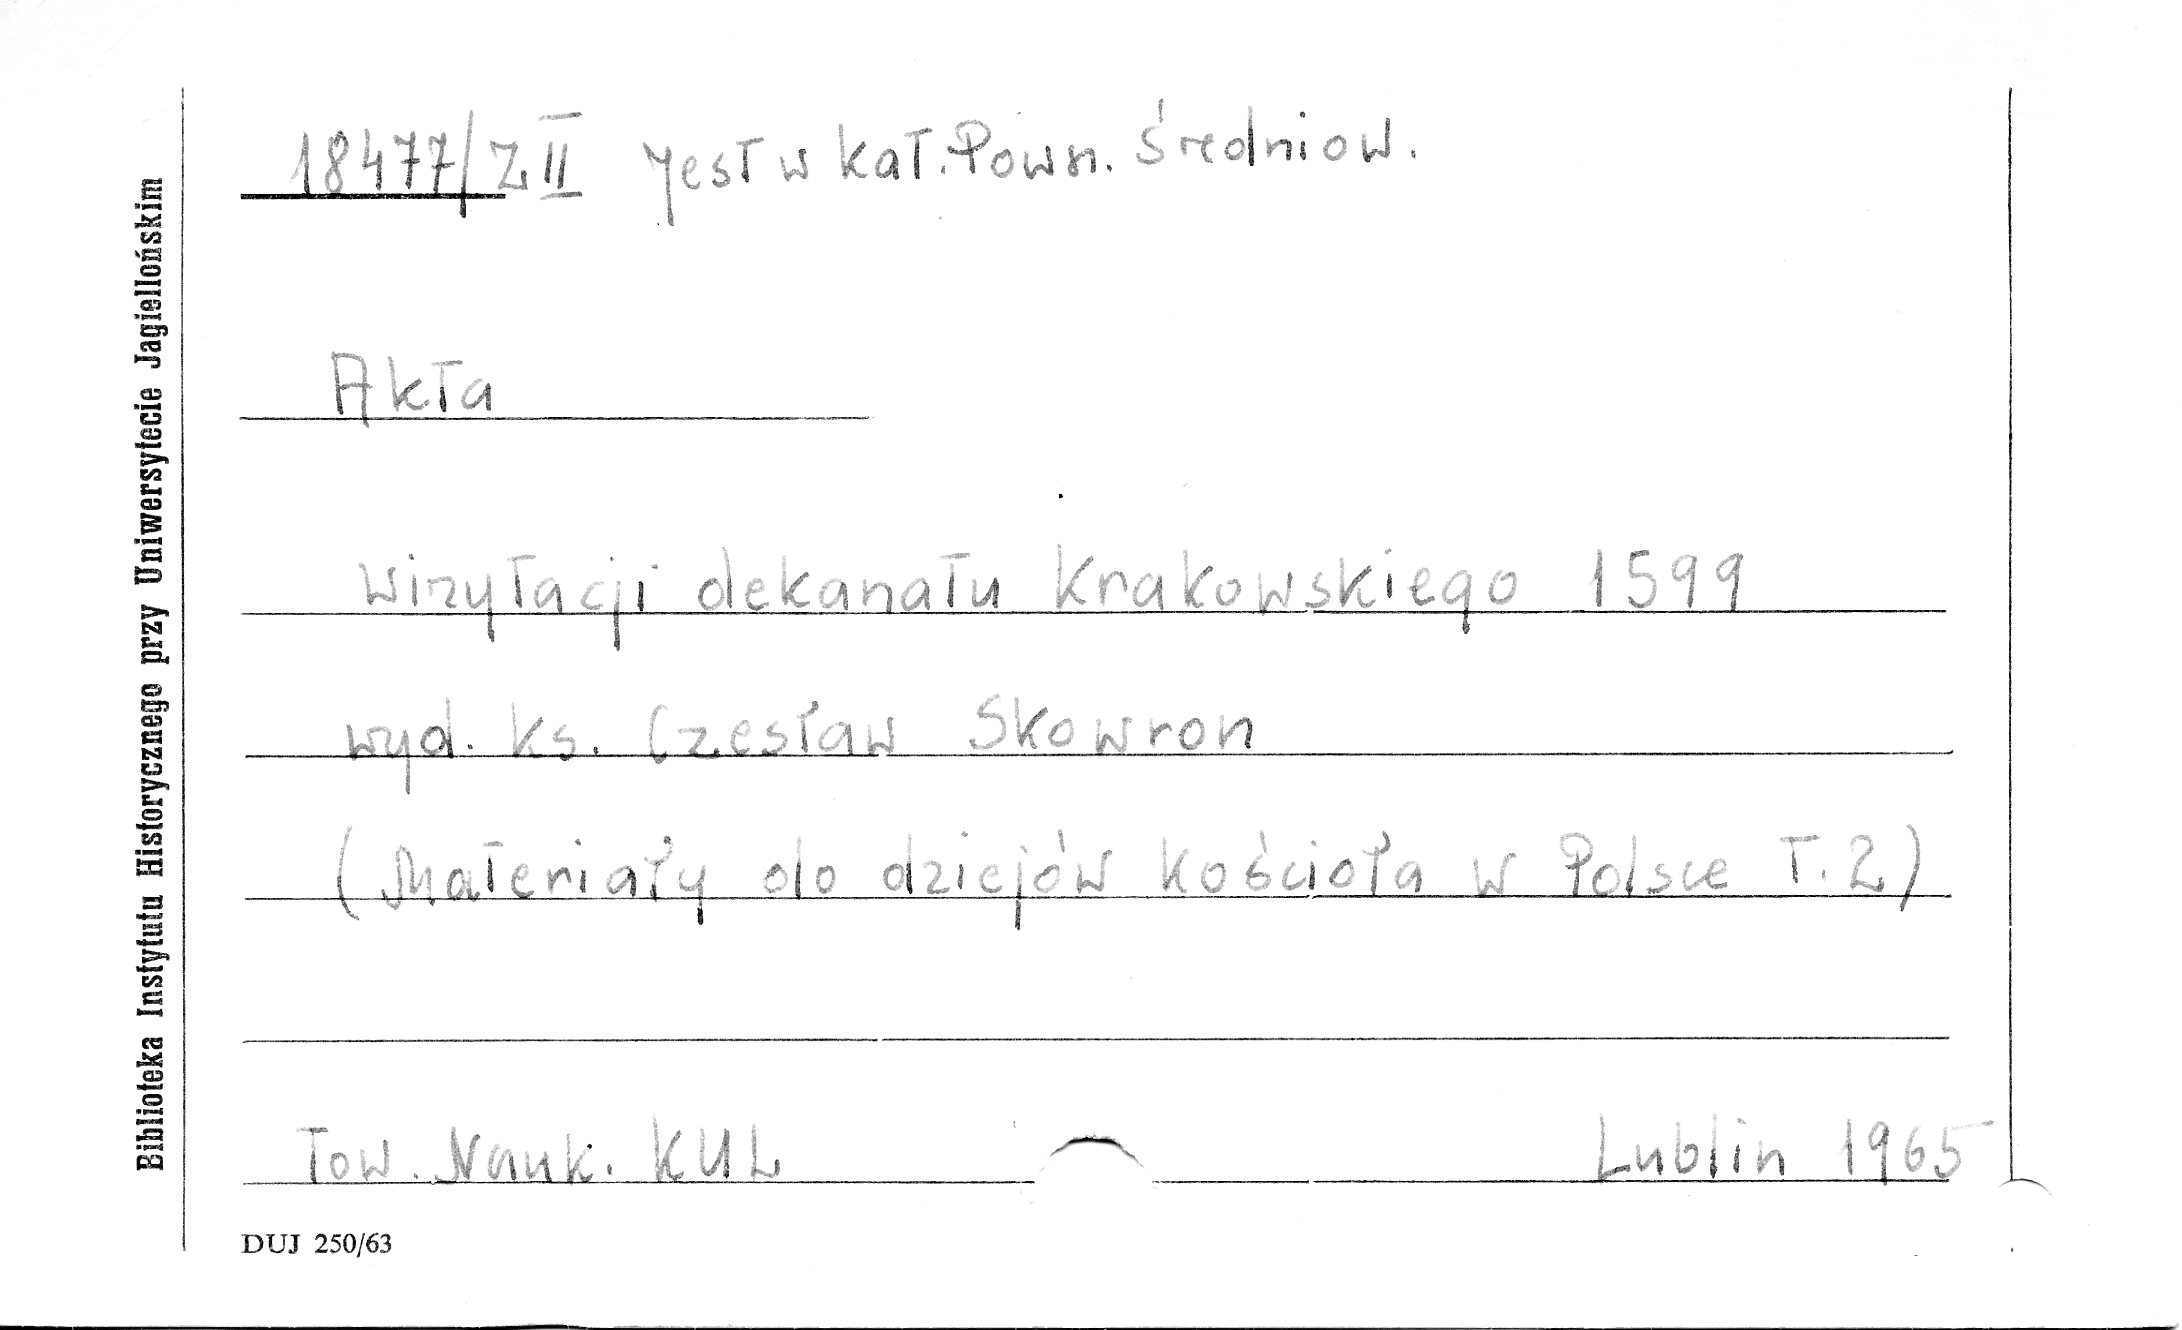 18477/Z II jest w kat. Powsz. Średniow.
Akta
wizytacji dekanatu Krakowskiego 1599
wyd. ks. Czesław Skowron
(Materiały do dziejów kościoła w Polsce T. 2)
Tow. Nauk. KUL Lublin 1965
DUJ 250/63
Biblioteka Instytutu Historycznego przy Uniwersytecie Jagiellońskim